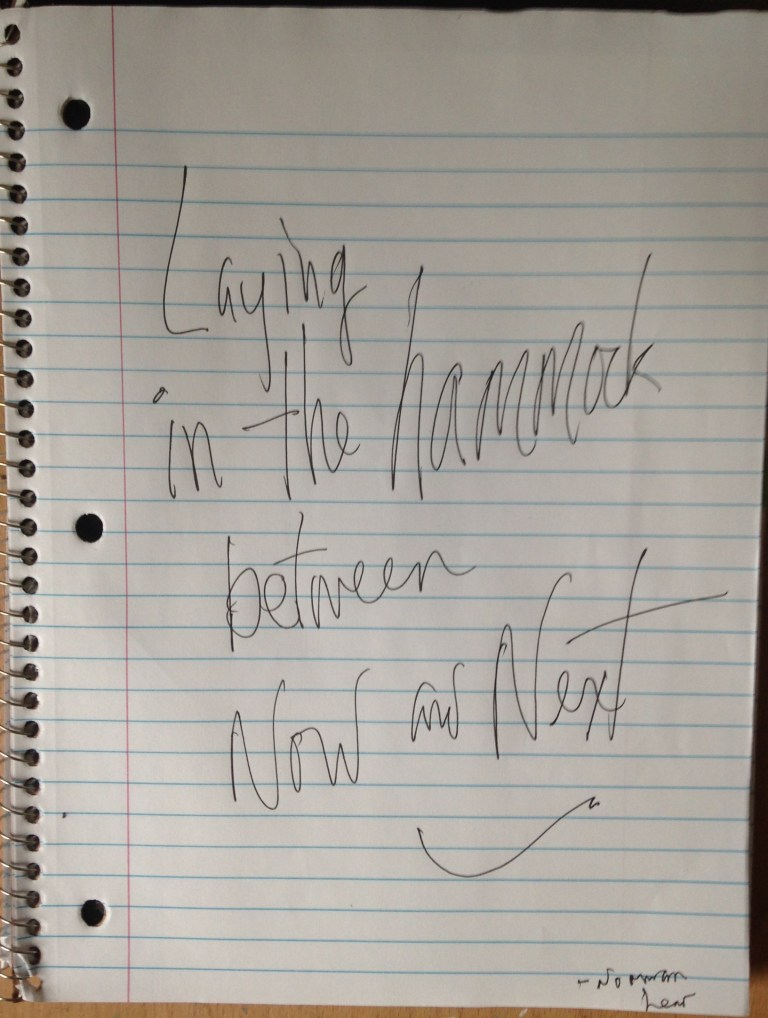 Laying
in the hammock
between
Now and Next
- Norman
Lear